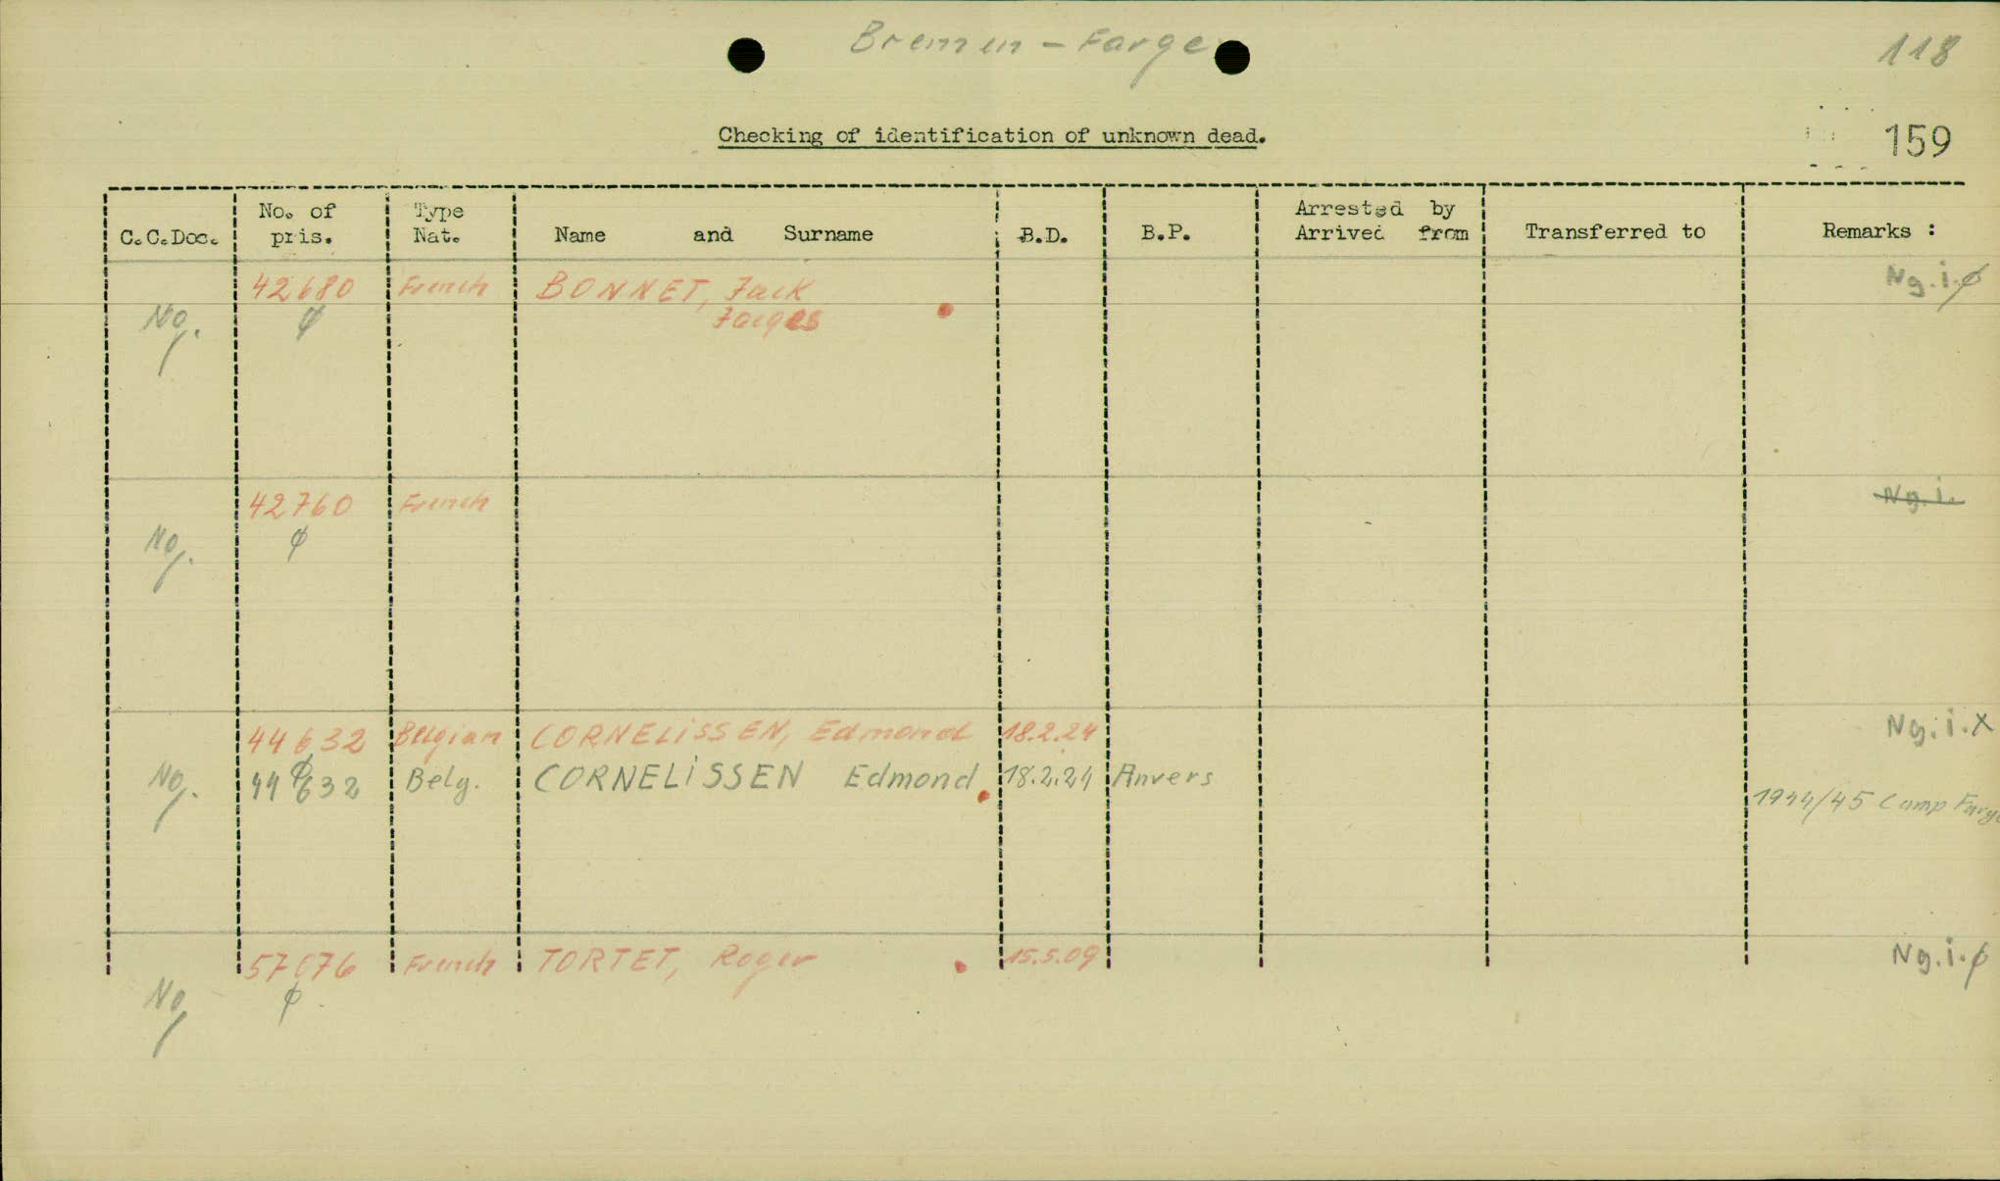 Bremen - Farge
118
Checking of identification of unknown dead.
159
C.C.Doc. No. of pris. Type Nat. Name and Surname B.D. B.P. Arrested by Arrived from Transferred to Remarks :
42680 French BONNET, Jack Ng.i.φ
Ng. φ Jacques
42760 French Ng.i.
Ng. φ
44632 Belgian CORNELiSSEN, Edmond 18.2.24 Ng.i.x
Ng. φ 44632 Belg. CORNELiSSEN Edmond 18.2.24 Anvers
1944/45 Camp Farge
57076 French TORTET, Roger 15.5.09 Ng.i.φ
Ng φ